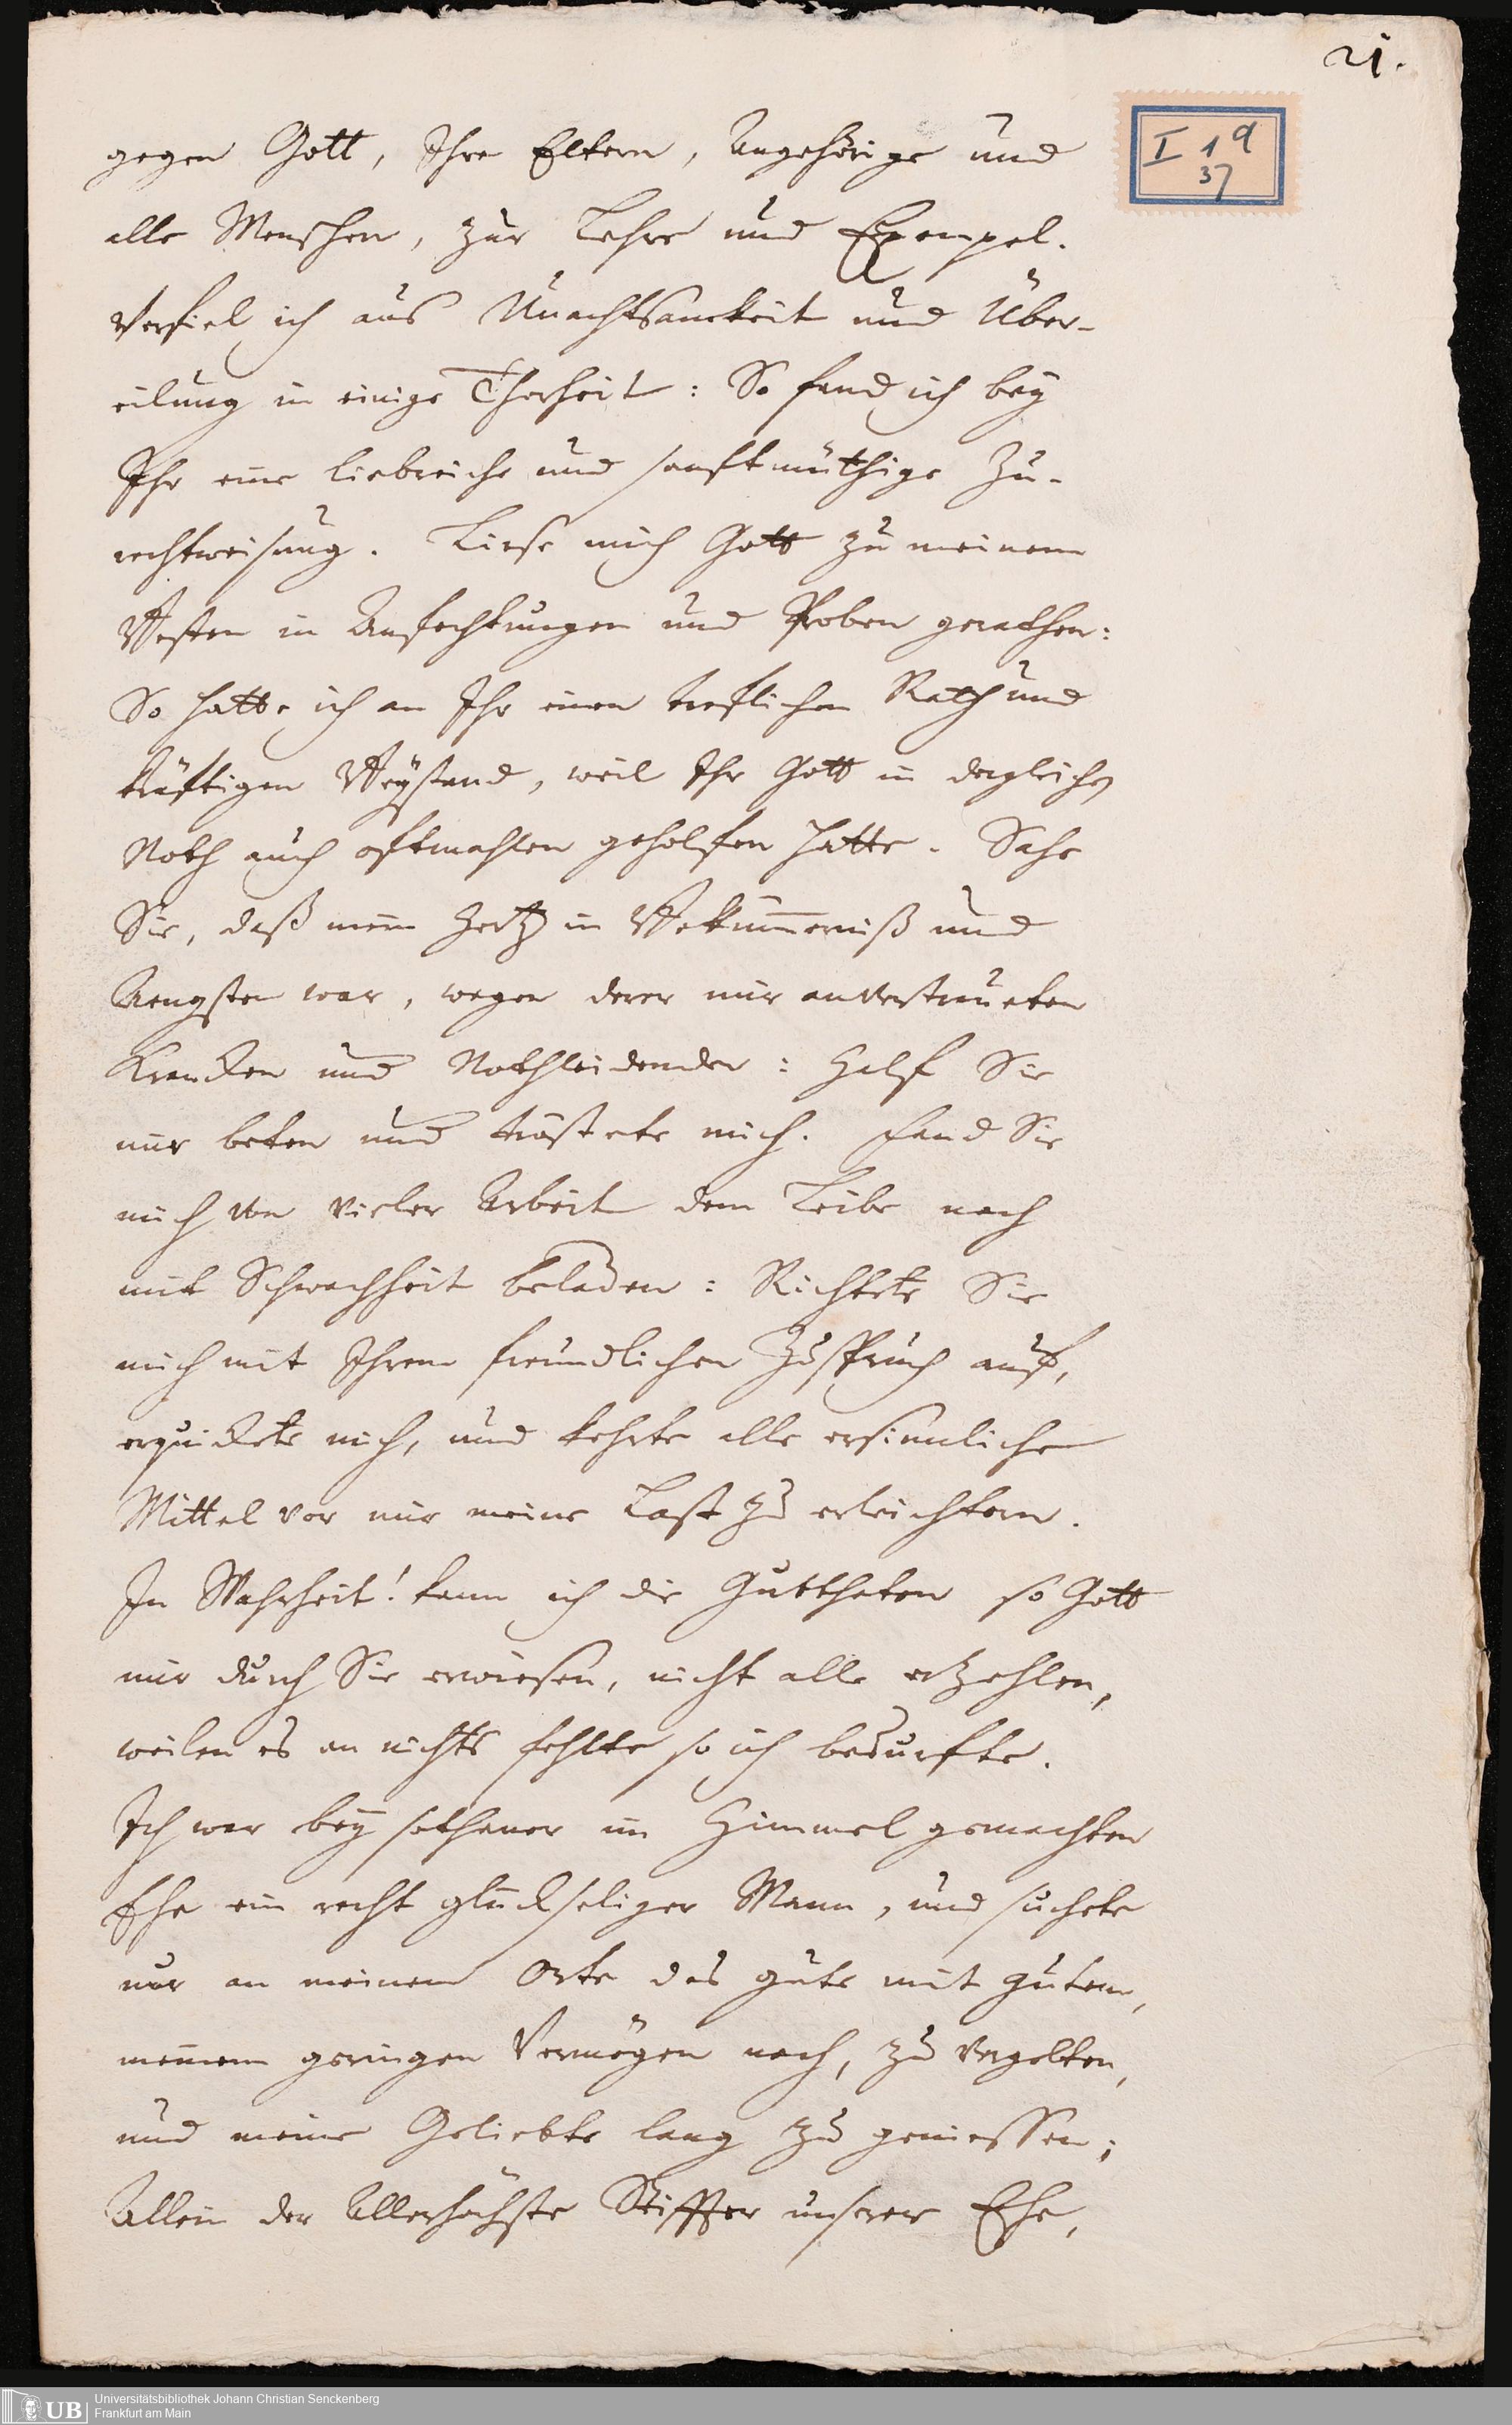 21.
I 1 a
37
gegen Gott, Ihre Eltern, Angehörige und
alle Menschen, zur Lehre und Exempel.
Verfiel ich aus Unachtsamkeit und Über-
eilung in einige Thorheit: So fand ich bey
Ihr eine liebreiche und sanftmüthige Zu-
rechtweisung. Liese mich Gott zu meinem
Besten in Anfechtungen und Proben gerathen:
So hatte ich an Ihr einen treflichen Rath und
kräftigen Beystand, weil Ihr Gott in dergleichen
Noth auch oftmahlen geholfen hatte. Sahe
Sie, daß mein Hertz in Bekümmerniß und
Aengsten war, wegen derer mir anvertraueten
Krancken und Nothleidenden: Half Sie
mir beten und tröstete mich. Fand Sie
mich von vieler Arbeit dem Leibe nach
mit Schwachheit beladen: Richtete Sie
mich mit Ihrem freundlichen Zuspruch auf,
erquickete mich, und kehrte alle ersinnliche
Mittel vor mir meine Last zu erleichtern.
In Wahrheit! kann ich die Gutthaten so Gott
mir durch Sie erwiesen, nicht alle erzehlen,
weilen es an nichts fehlte so ich bedurfte.
Ich war bey sothaner im Himmel gemachten
Ehe ein recht glückseliger Mann, und suchete
nur an meinem Orte das gute mit gutem,
meinem geringen Vermögen nach, zu vergelten,
und meine Geliebte lang zu geniessen;
Allein der Allerhöchste Stiffter unserer Ehe,
UB
Universitätsbibliothek Johann Christian Senckenberg
Frankfurt am Main